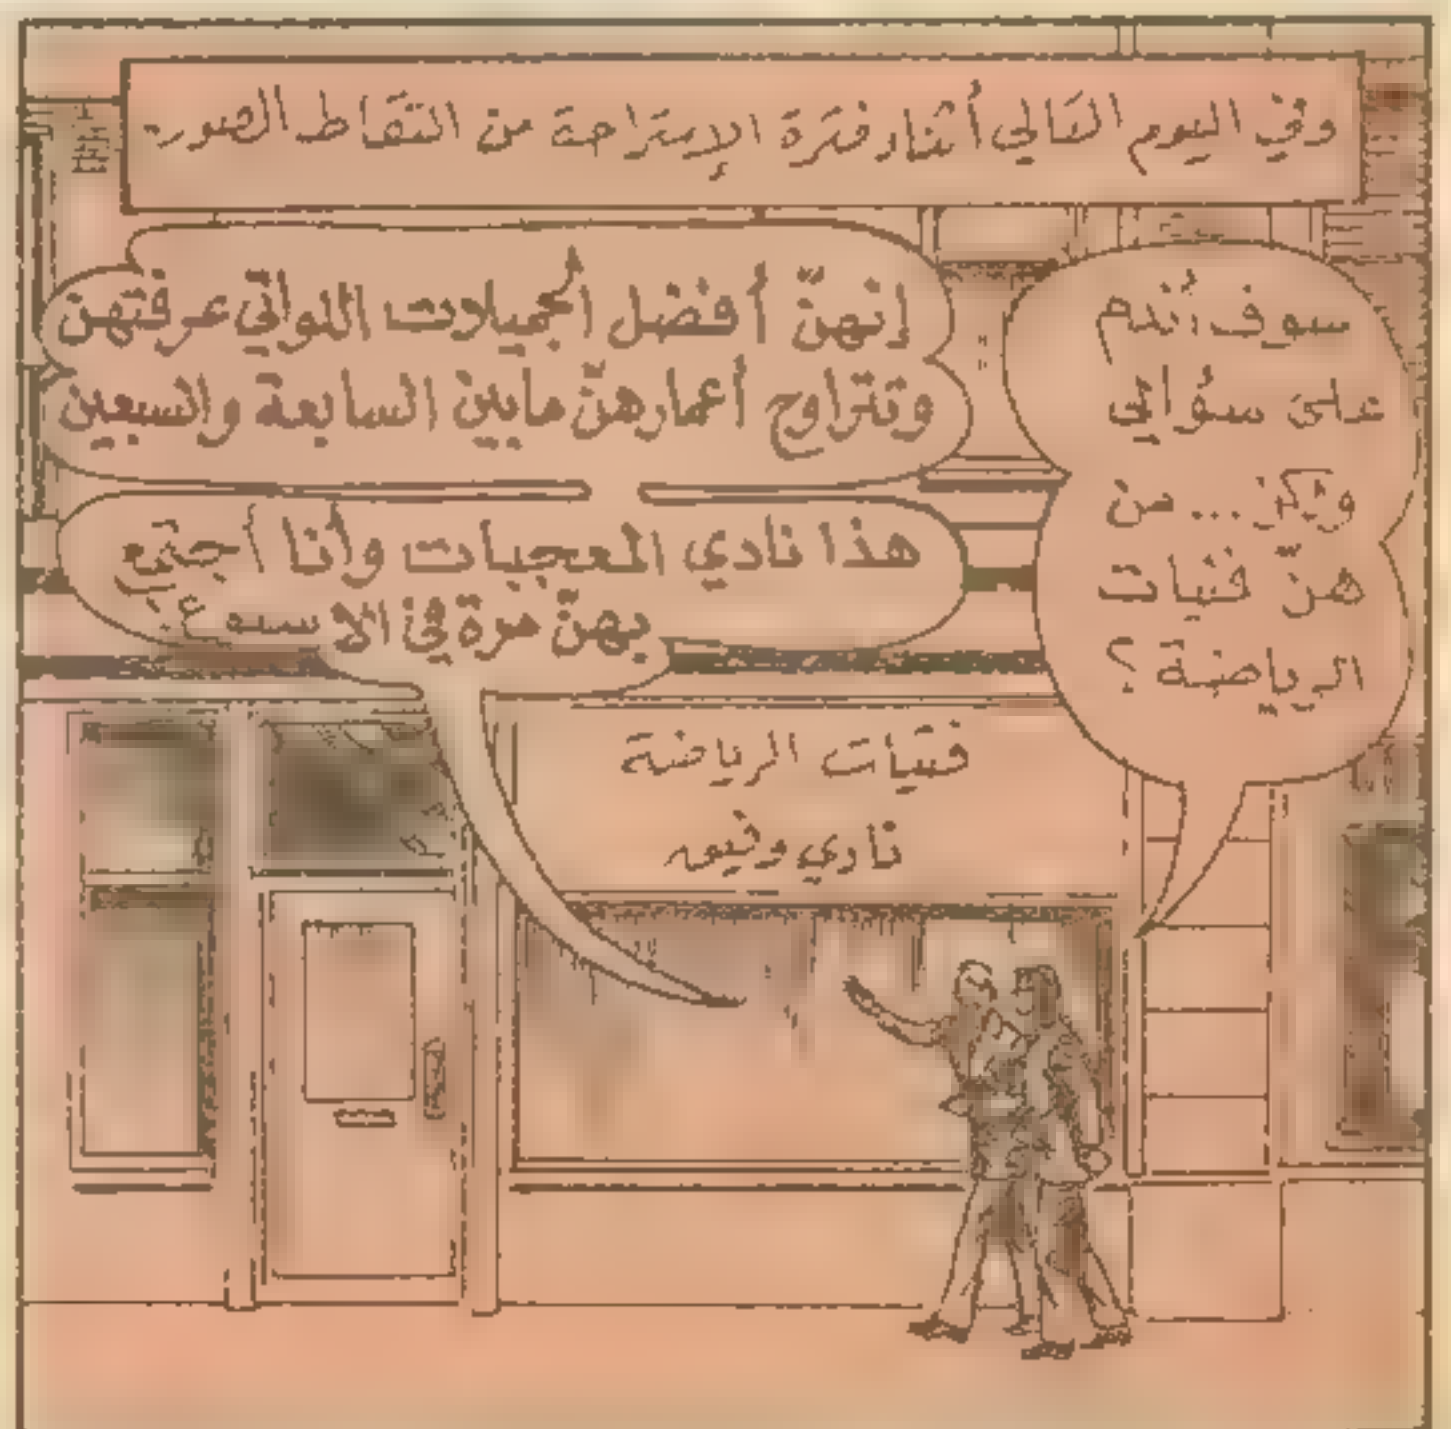 وفي اليوم التالي أثناء فترة الإستراحة من التقاط الصور
سوف أندم
على سؤالي
ولكن... من
هنّ فتيات
الرياضة ؟
إنهنّ أفضل الجميلات اللواتي عرفتهن
وتتراوح أعمارهنّ مابين السابعة والسبعين
هذا نادي المعجبات وأنا أجتمع
بهنّ مرة في الا سبوع
فتيات الرياضة
نادي